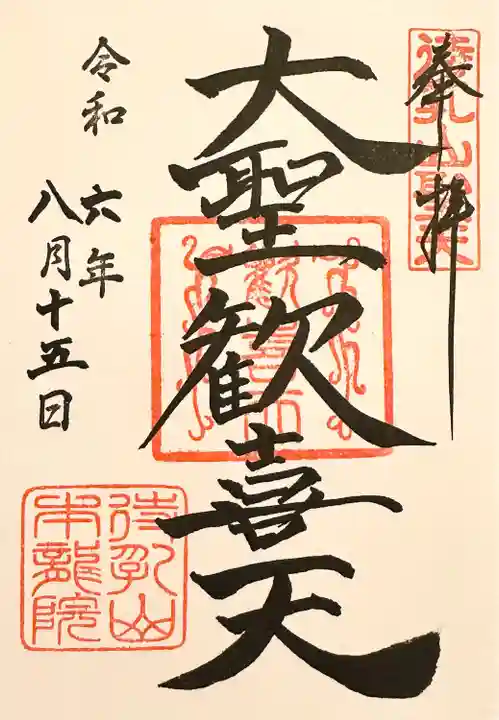 奉拝
待乳山聖天
大聖歓喜天
歓喜天
令和六年
八月十五日
待乳山
本龍院